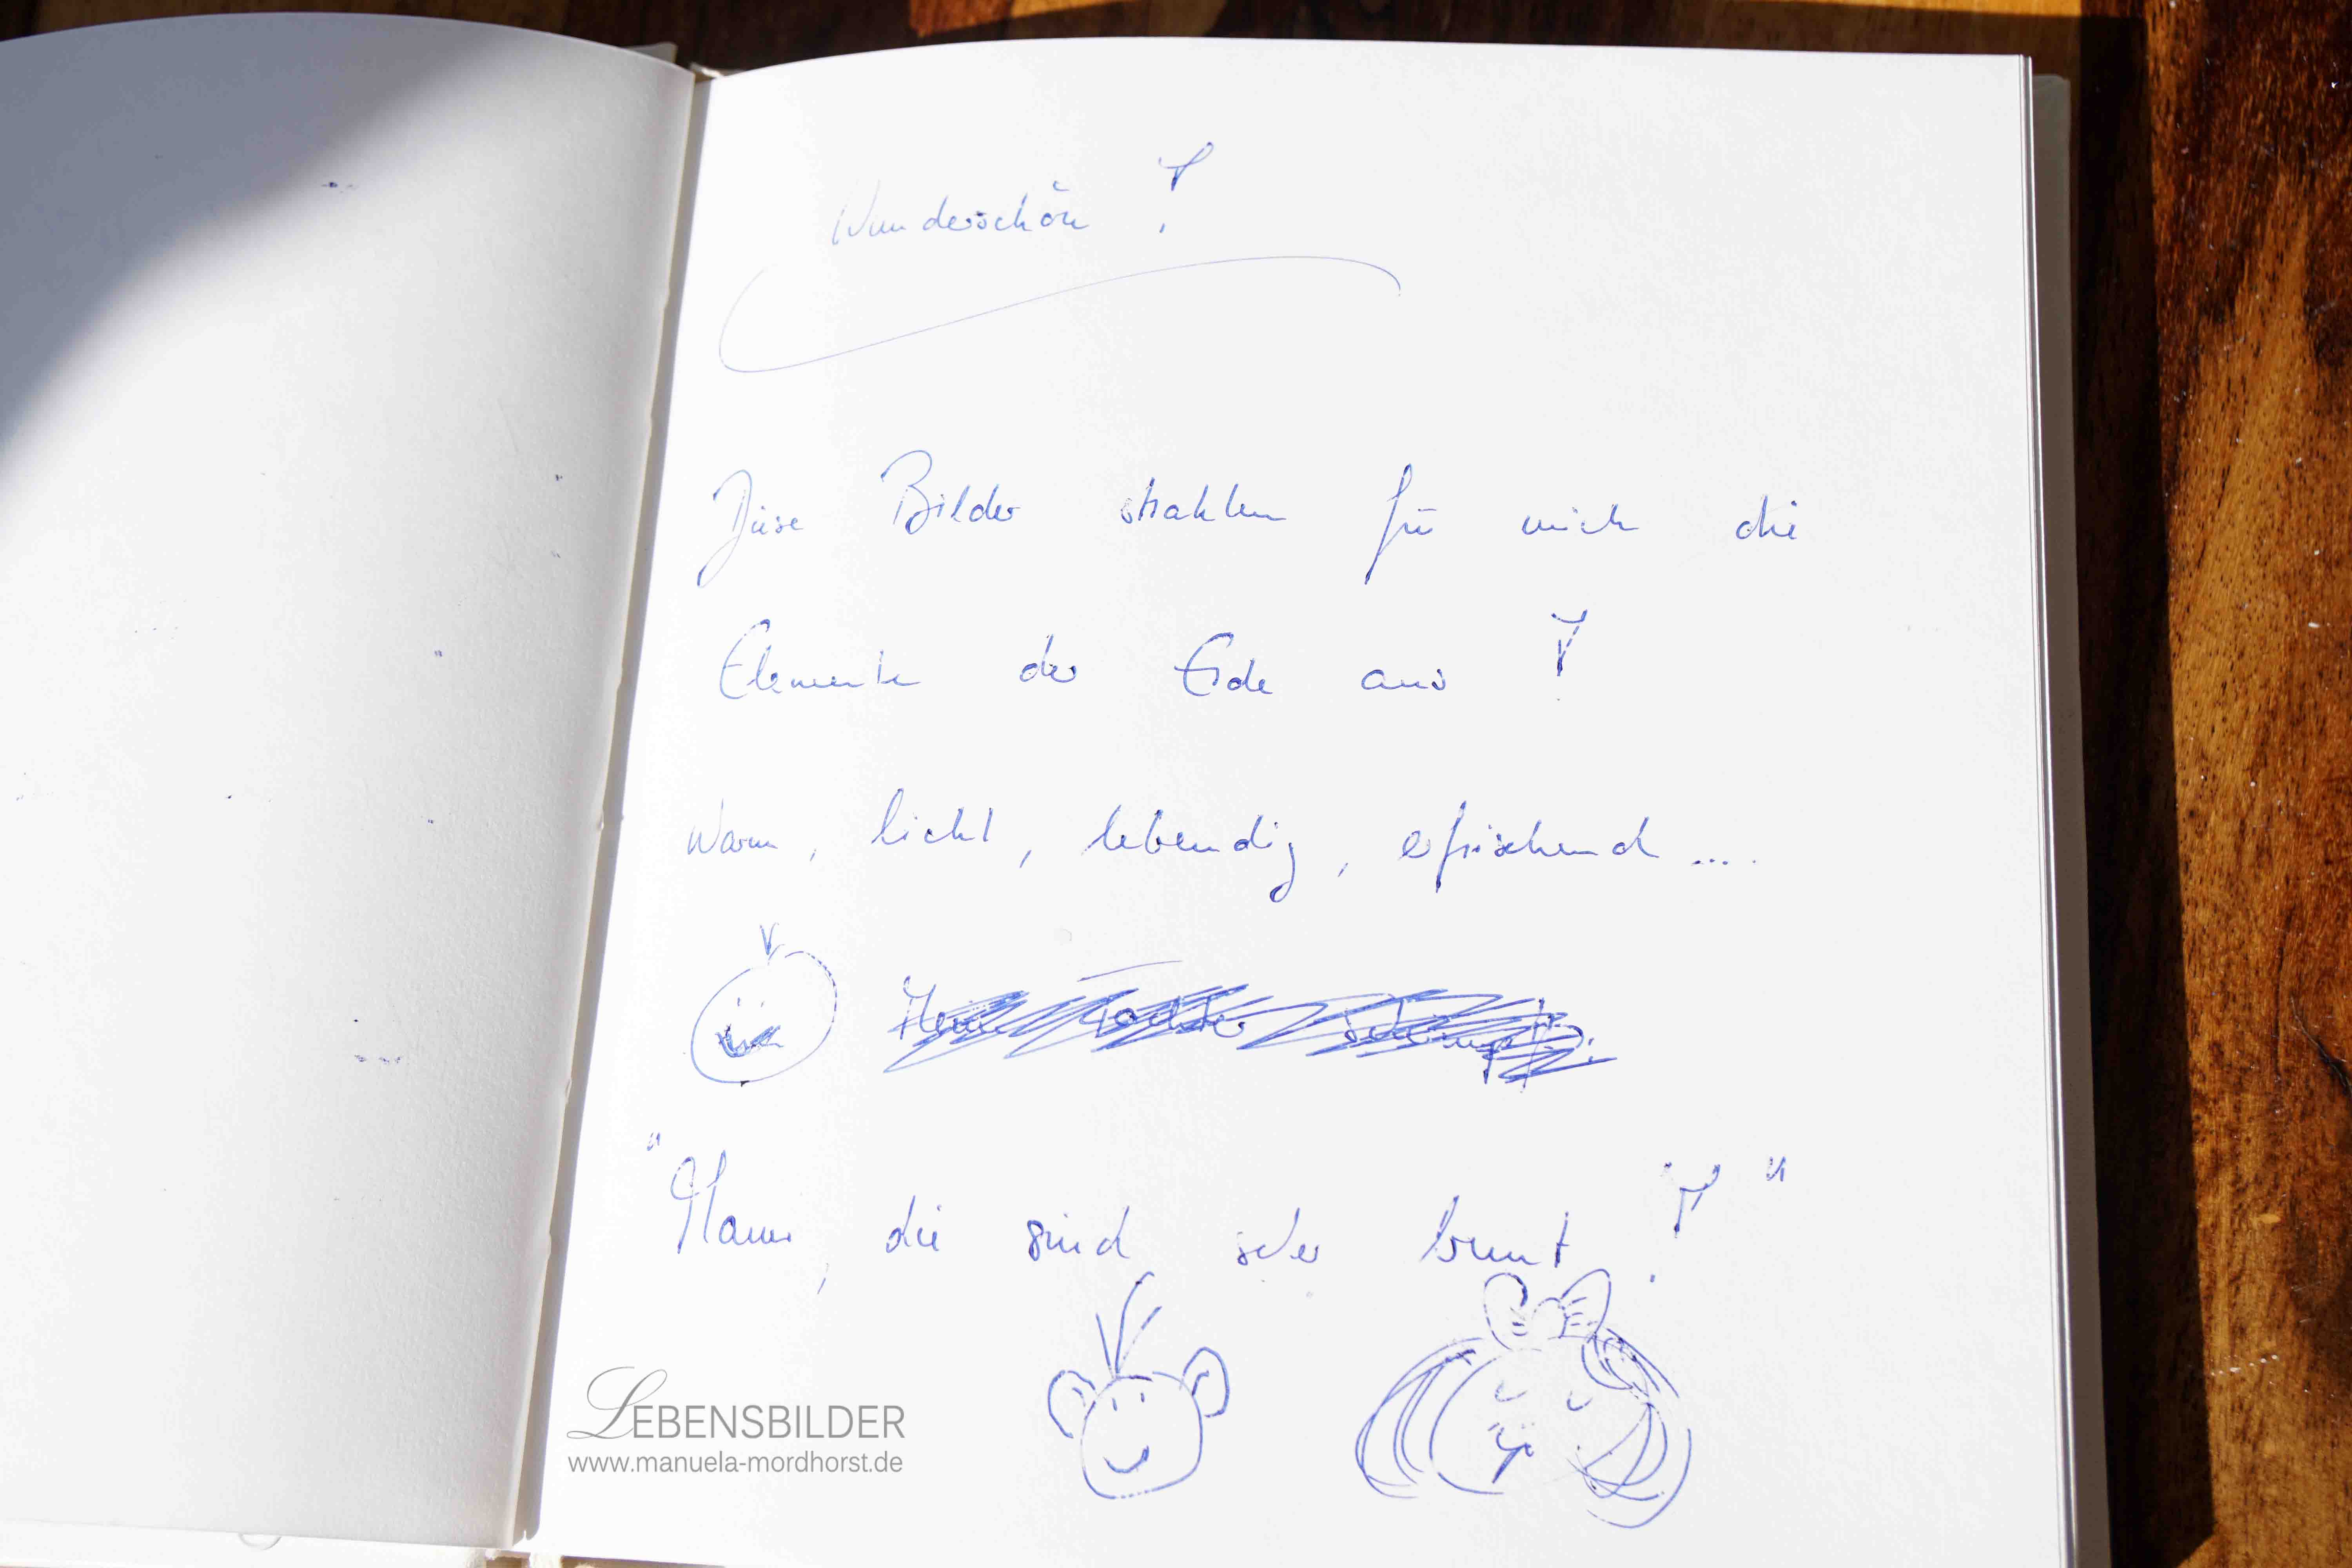 Wunderschön!
Diese Bilder strahlen für mich die
Elemente der Erde aus!
Warm, licht, lebendig, erfrischend....
"Mama, die sind sehr bunt!"
LEBENSBILDER
www.manuela-mordhorst.de